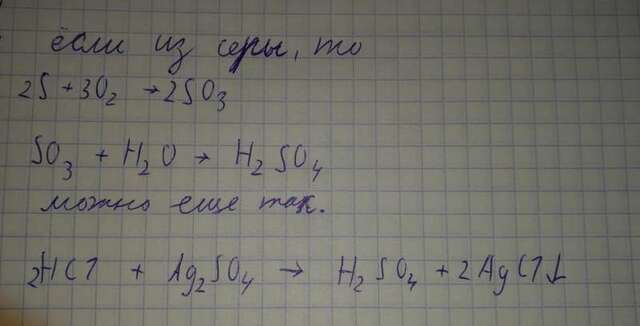 если из серы, то
2S + 3O₂ → 2SO₃
SO₃ + H₂O → H₂SO₄
можно еще так.
2HCl + Ag₂SO₄ → H₂SO₄ + 2AgCl↓